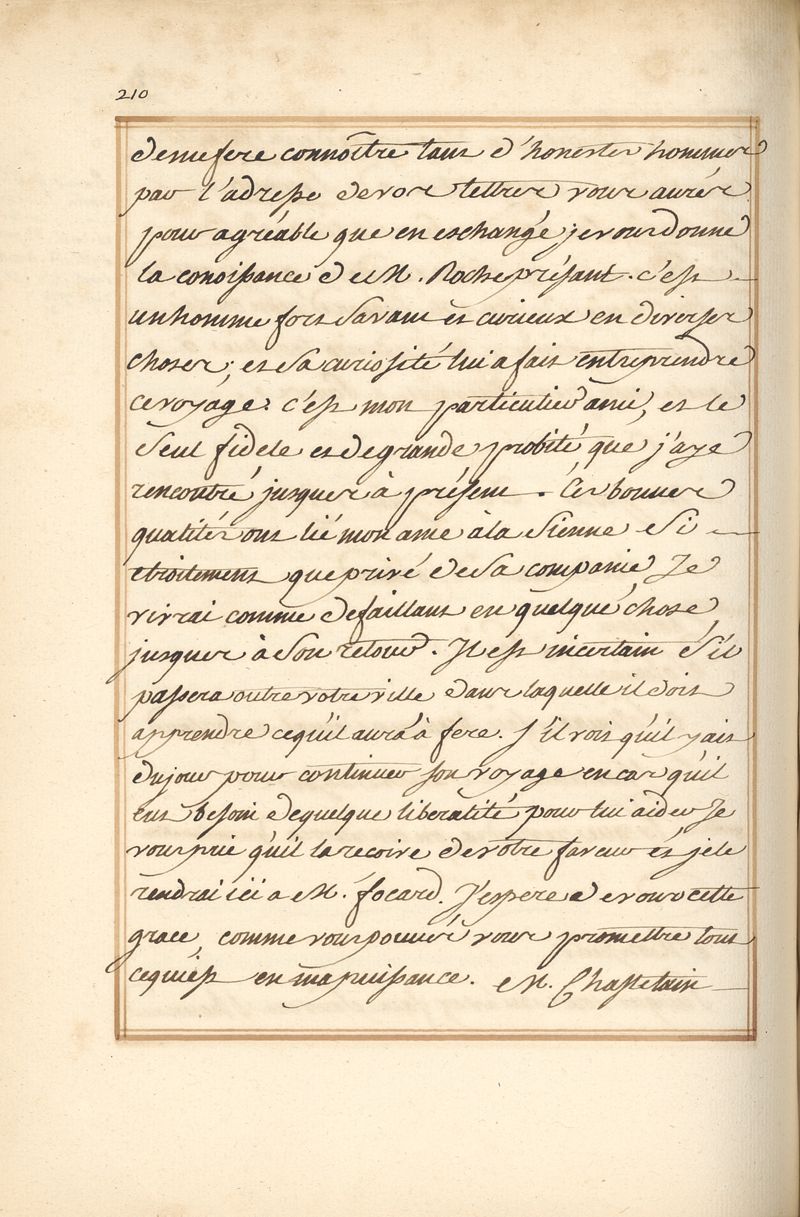 210
de me fere connoître tant d'honestes hommes
par l'adresse de vos lettres vous aurés
pour agréable que en eschangé je vous donne
la conoissance de M. Roche présant. c'est
un homme fort savant et curieux en diverses
choses; et sa curiosité lui a fait entreprendre
ce voyage. c'est mon particulier ami, et le
seul fidele et de grande probité que j'aye
rencontré jusques à présent. Ces bonnes
qualités ont lié mon ame à la sienne si
etroitement que privé de sa companie Je
vivrai comme defaillant en quelque chose
jusques à son retour. Il est incertain s'il
passera outre votre ville dans laquelle il doit
apprendre ce qu'il aura à fere. S'il voit qu'il y ait
du jour pour continuer son voyage en cas qu'il
eut besoin de quelque liberalité pour lui aider Je
vous prie qu'il la recoive de votre faveur et je le
rendrai ici a M. focard. J'espere de vous cette
grace, comme vous pouvés vous promettre tout
ce qui est en ma puissance. M. Chastelain